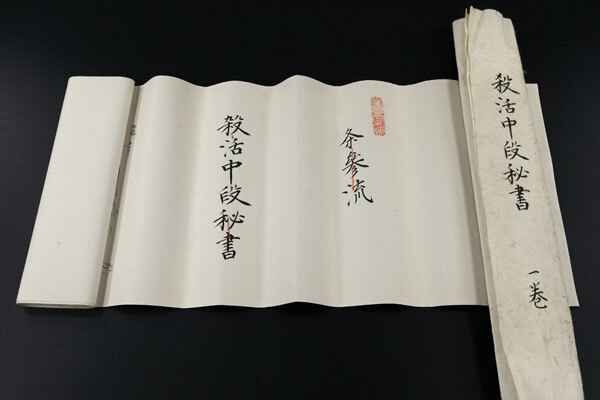 殺活中段秘書
一巻
条參流
殺活中段秘書